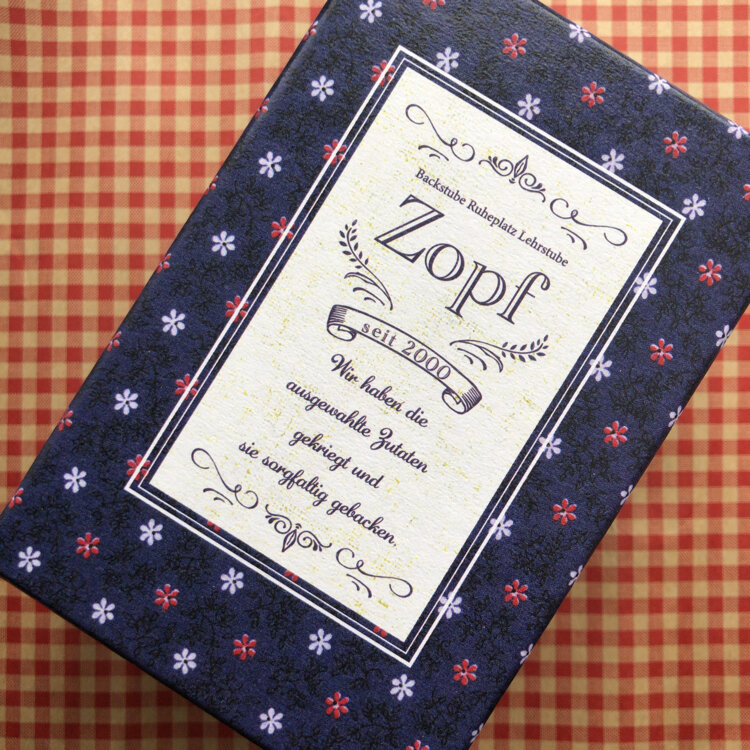 Backstube Ruheplatz Lehrstube
Zopf
seit 2000
Wir haben die
ausgewahlte Zutaten
gekriegt und
sie sorgfaltig gebacken.